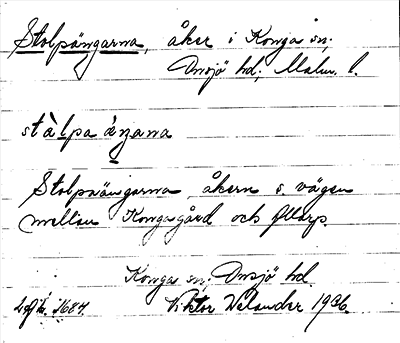 Stolpängarna, åker i Konga sn;
Onsjö hd; Malm. l.
stàlpa áŋana
Stolpaängarna åkern s. vägen
mellan Kongagård och Allarp.
Konga sn; Onsjö hd.
1684. Viktor Welander 1936.